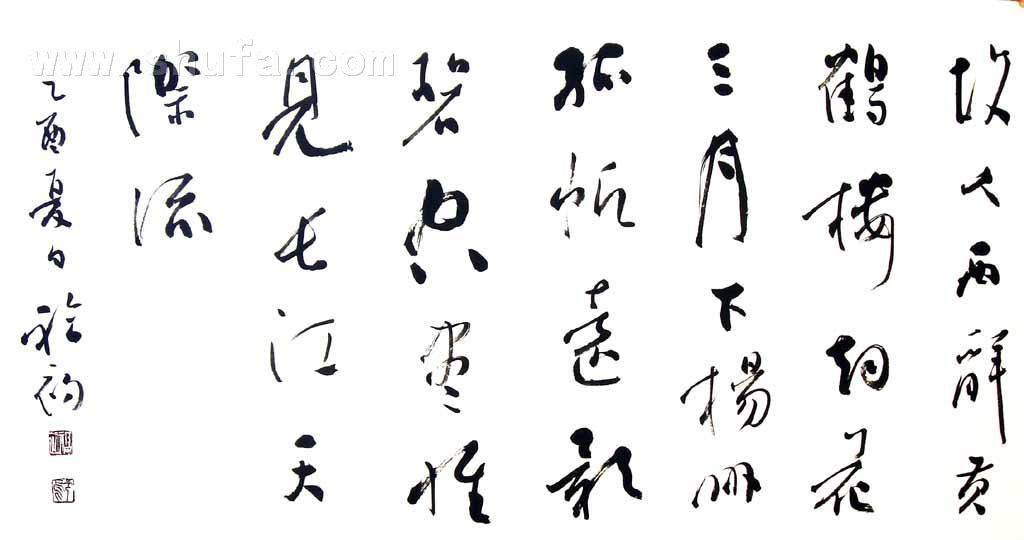 www.shufa.com
故人西辭黃
鶴樓烟花
三月下楊州
孤帆遠影
碧空盡惟
見長江天
際流
乙酉夏日